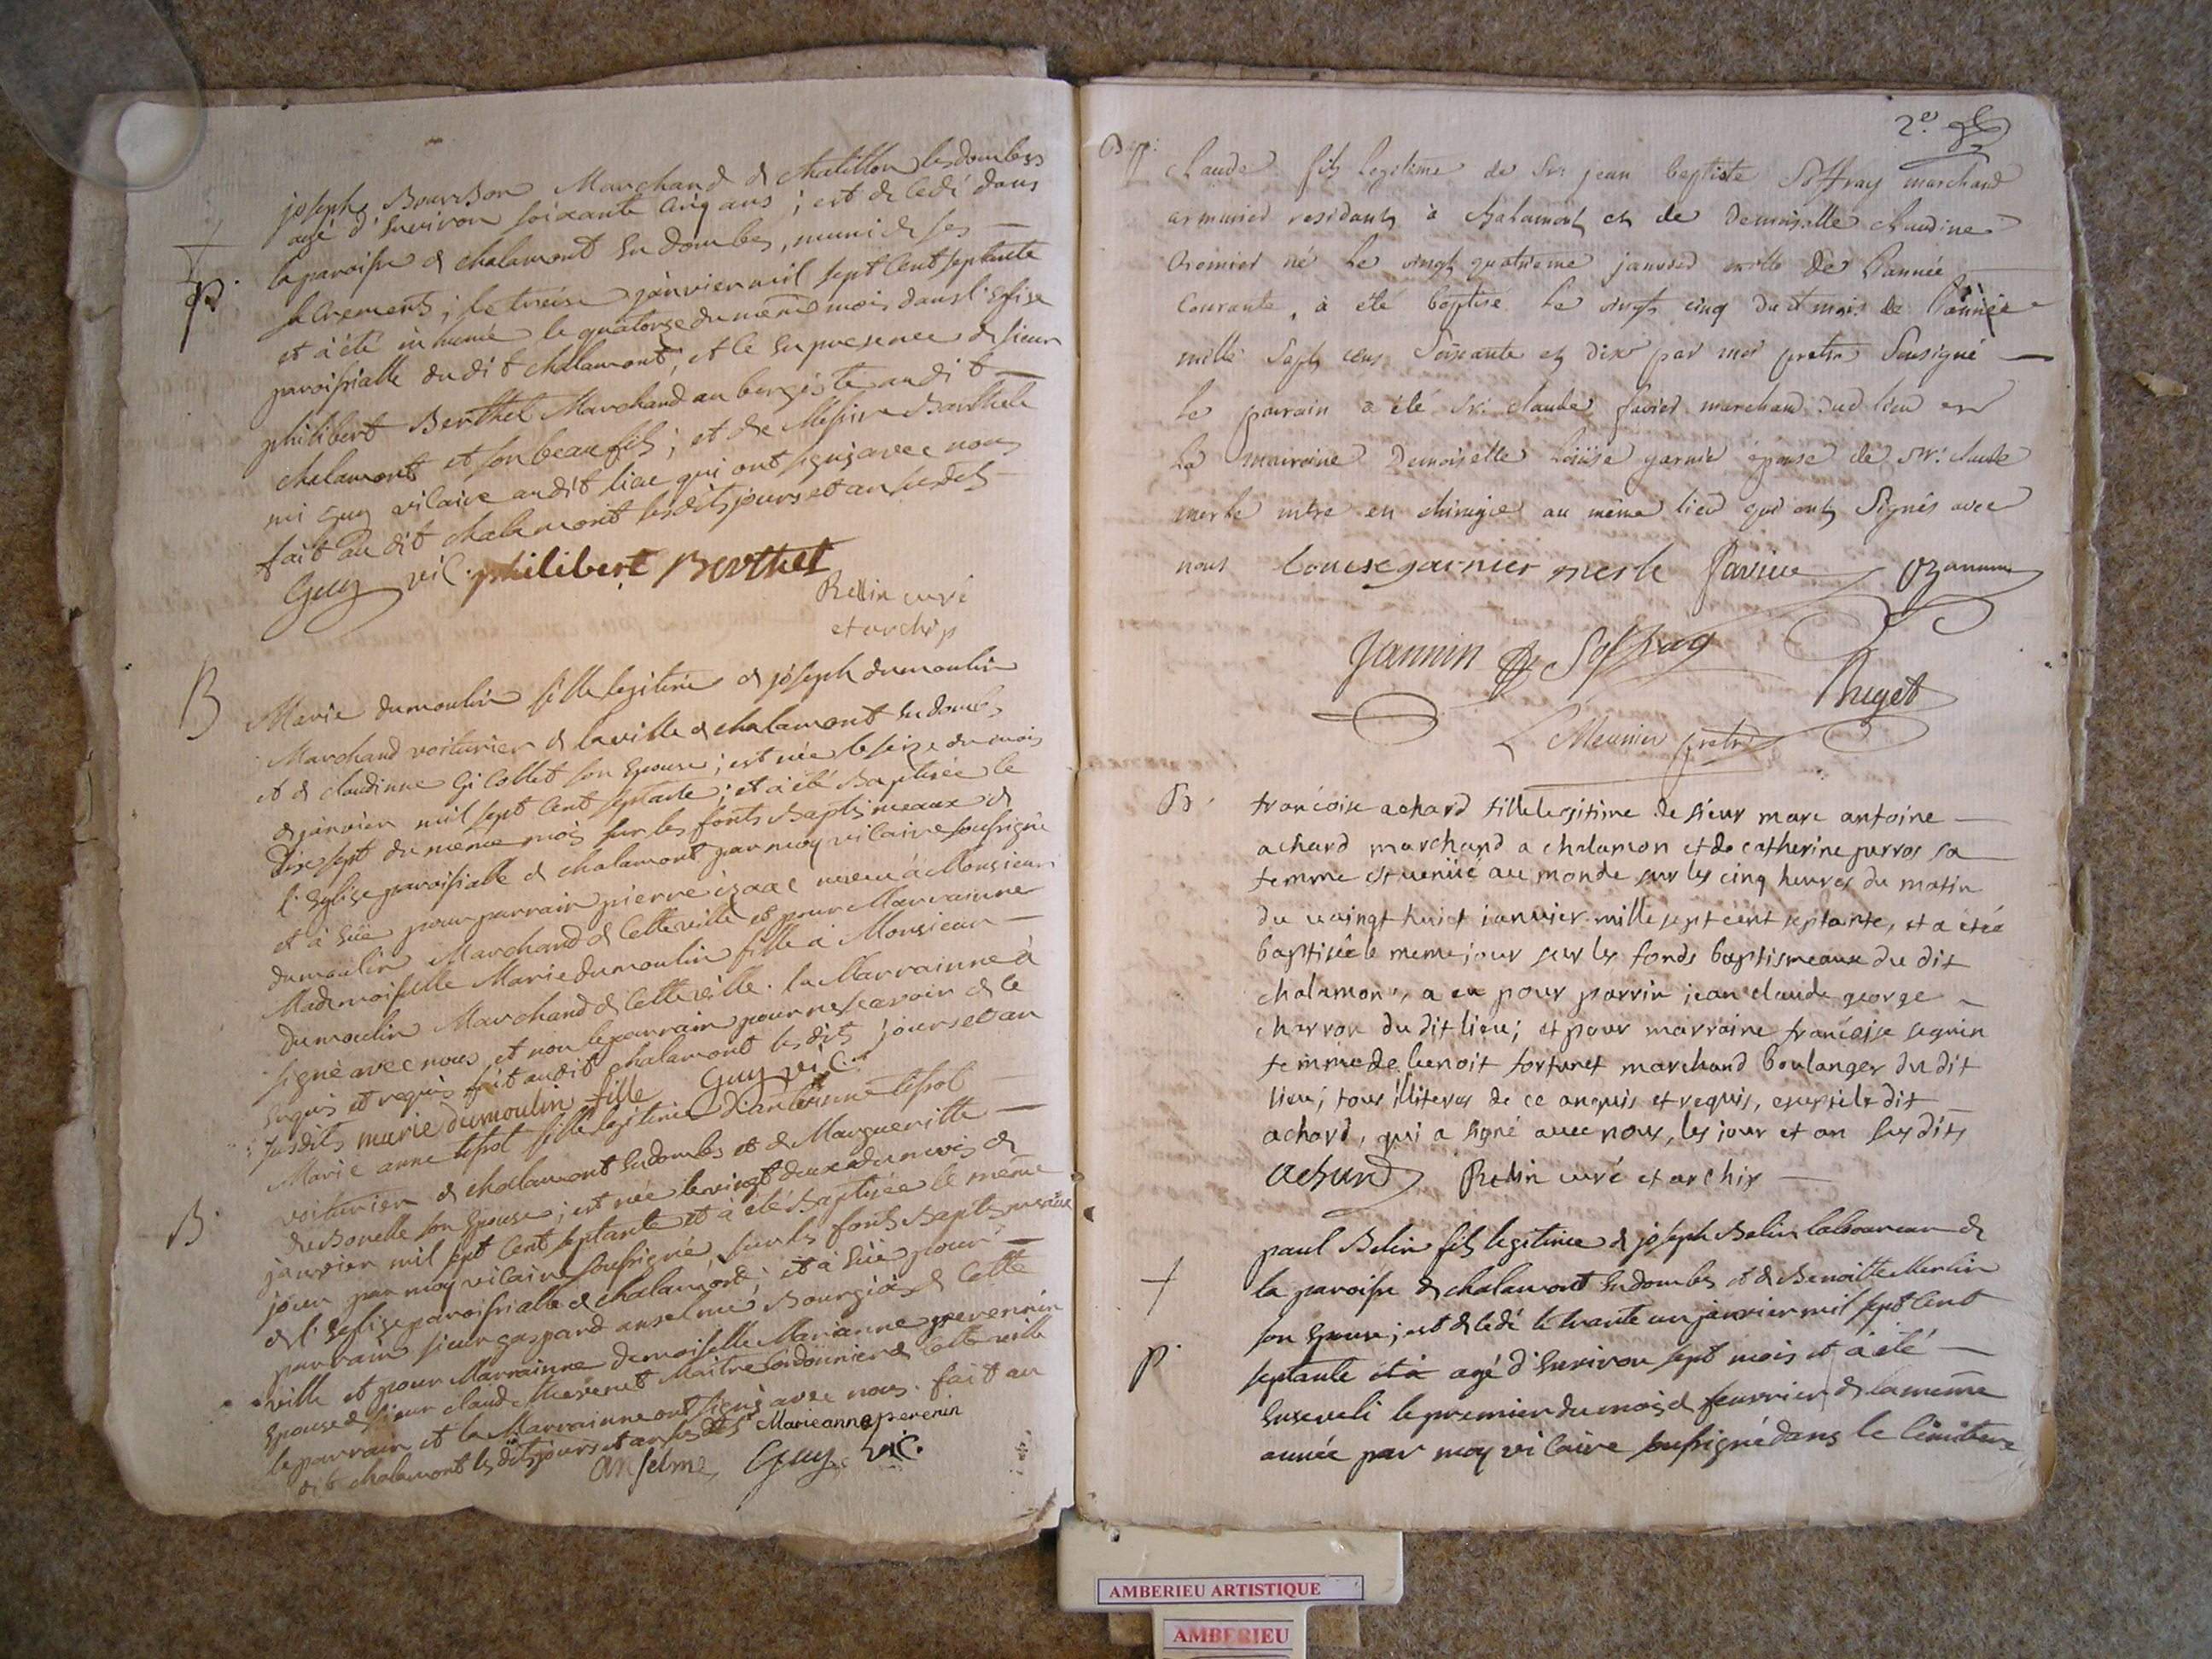 joseph Bourdon Marchand d chatillon les dombes
agé d'environ soixante cinq ans ; est decedé dans
la paroisse d chalamont en dombes, muni de ses —
sacrements ; le treise janvier mil sept cent septante
et à été inhumé le quatorze du meme mois dans l'Eglise
paroissialle du dit chalamont, et ce en presence de sieur
philibert Berthet Marchand aubergiste audit —
chalamont et son beau fils ; et de Messire Barthele
mi Guy vicaire audit lieu qui ont signé avec nous
fait audit chalamont lesdits jours et an susdits
Guy vic. philibert Berthet
Rellin curé
et archip
B
Marie dumoulin fille legitime d joseph dumoulin
Marchand voiturier d la ville d chalamont en dombes
et d claudinne Gicollet son Epouse ; est née le seize du mois
d janvier mil sept cent septante ; et à été Baptisée le
dix sept du meme mois sur les fonts Baptismeaux d
l'Eglise paroissialle d chalamont par moy vicaire soussigné
et à eüe pour parrain pierre isaac neveu à Monsieur
dumoulin Marchand d cette ville et pour Marrainne
Mademoiselle Marie dumoulin fille à Monsieur —
dumoulin Marchand d cette ville. la Marrainne à
signé avec nous et non le parrain pour ne scavoir d ce
enquis et requis fait audit chalamont les dits jours et an
susdits marie dumoulin fille Guy vic.
B.
Marie anne tissot fille legitime d'anthoinne tissot —
voiturier d chalamont en dombes et d Margueritte —
son Epouse ; est née le vingt deux du mois d
janvier mil sept cent septante et à été Baptisée le même
jour par moy vicaire soussigné, sur les fonts Baptismeaux
d l'Eglise paroissialle d chalamont ; et à eüe pour —
parrain sieur gaspard anselme Bourgois d cette
ville et pour Marrainne demoiselle Marianne perennin
Epouse d sieur claude thevenet Maitre cordonnier d cette ville
le parrain et la Marrainne ont signé avec nous. fait au
dit chalamont les dits jours et an susdits Marieanne perenin
anselme Guy vic.
2e
Bapt:
Claude fils Legitime de Sr: jean baptiste Soffray marchand
armurier residant à chalamont et de Demoiselle claudine
Cremier né le vingt quatrieme janvier mille de l'année
Courante, à été baptisé le vingt cinq dudt mois de l'année
mille Sept cens Soixante et dix par moi pretre Sousigné —
le parain a été Sr: claude favier marchand dud lieu et
La mairaine Demoiselle Loüise garnier épouse de Sr: claude
merle mtre en chirurgie au même lieu qui ont Signés avec
nous Louise garnier merle favier Ozanne
Jannin Soffray
Puget
L Meunier pretre
B.
francoise achard fille legitime de sieur marc antoine —
achard marchand a chalamon et de catherine perros sa
femme est venüe au monde sur les cinq heures du matin
du vaingt huict ianvier mille sept cent septante, et a etéé
baptisée le meme jour sur les fonds baptismeaux du dit
chalamon, a eu pour parrin jean claude george —
charron du dit lieu ; et pour marraine francoise seguin
femme de benoit fortunet marchand boulanger du dit
lieu ; tous illiteres de ce anquis et requis, excepté le dit
achard, qui a signé avec nous, les jour et an susdits
achard Rellin curé et archip —
paul Belin fils legitime d joseph Belin laboureur d
la paroisse d chalamont en dombes et d Benoitte Merlin
son Epouse ; est decedé le trante un janvier mil sept cent
septante et à agé d'environ sept mois et à été —
enseveli le premier du mois d feuvrier d la même
année par moy vicaire soussigné dans le cimitiere
AMBERIEU ARTISTIQUE
AMBERIEU